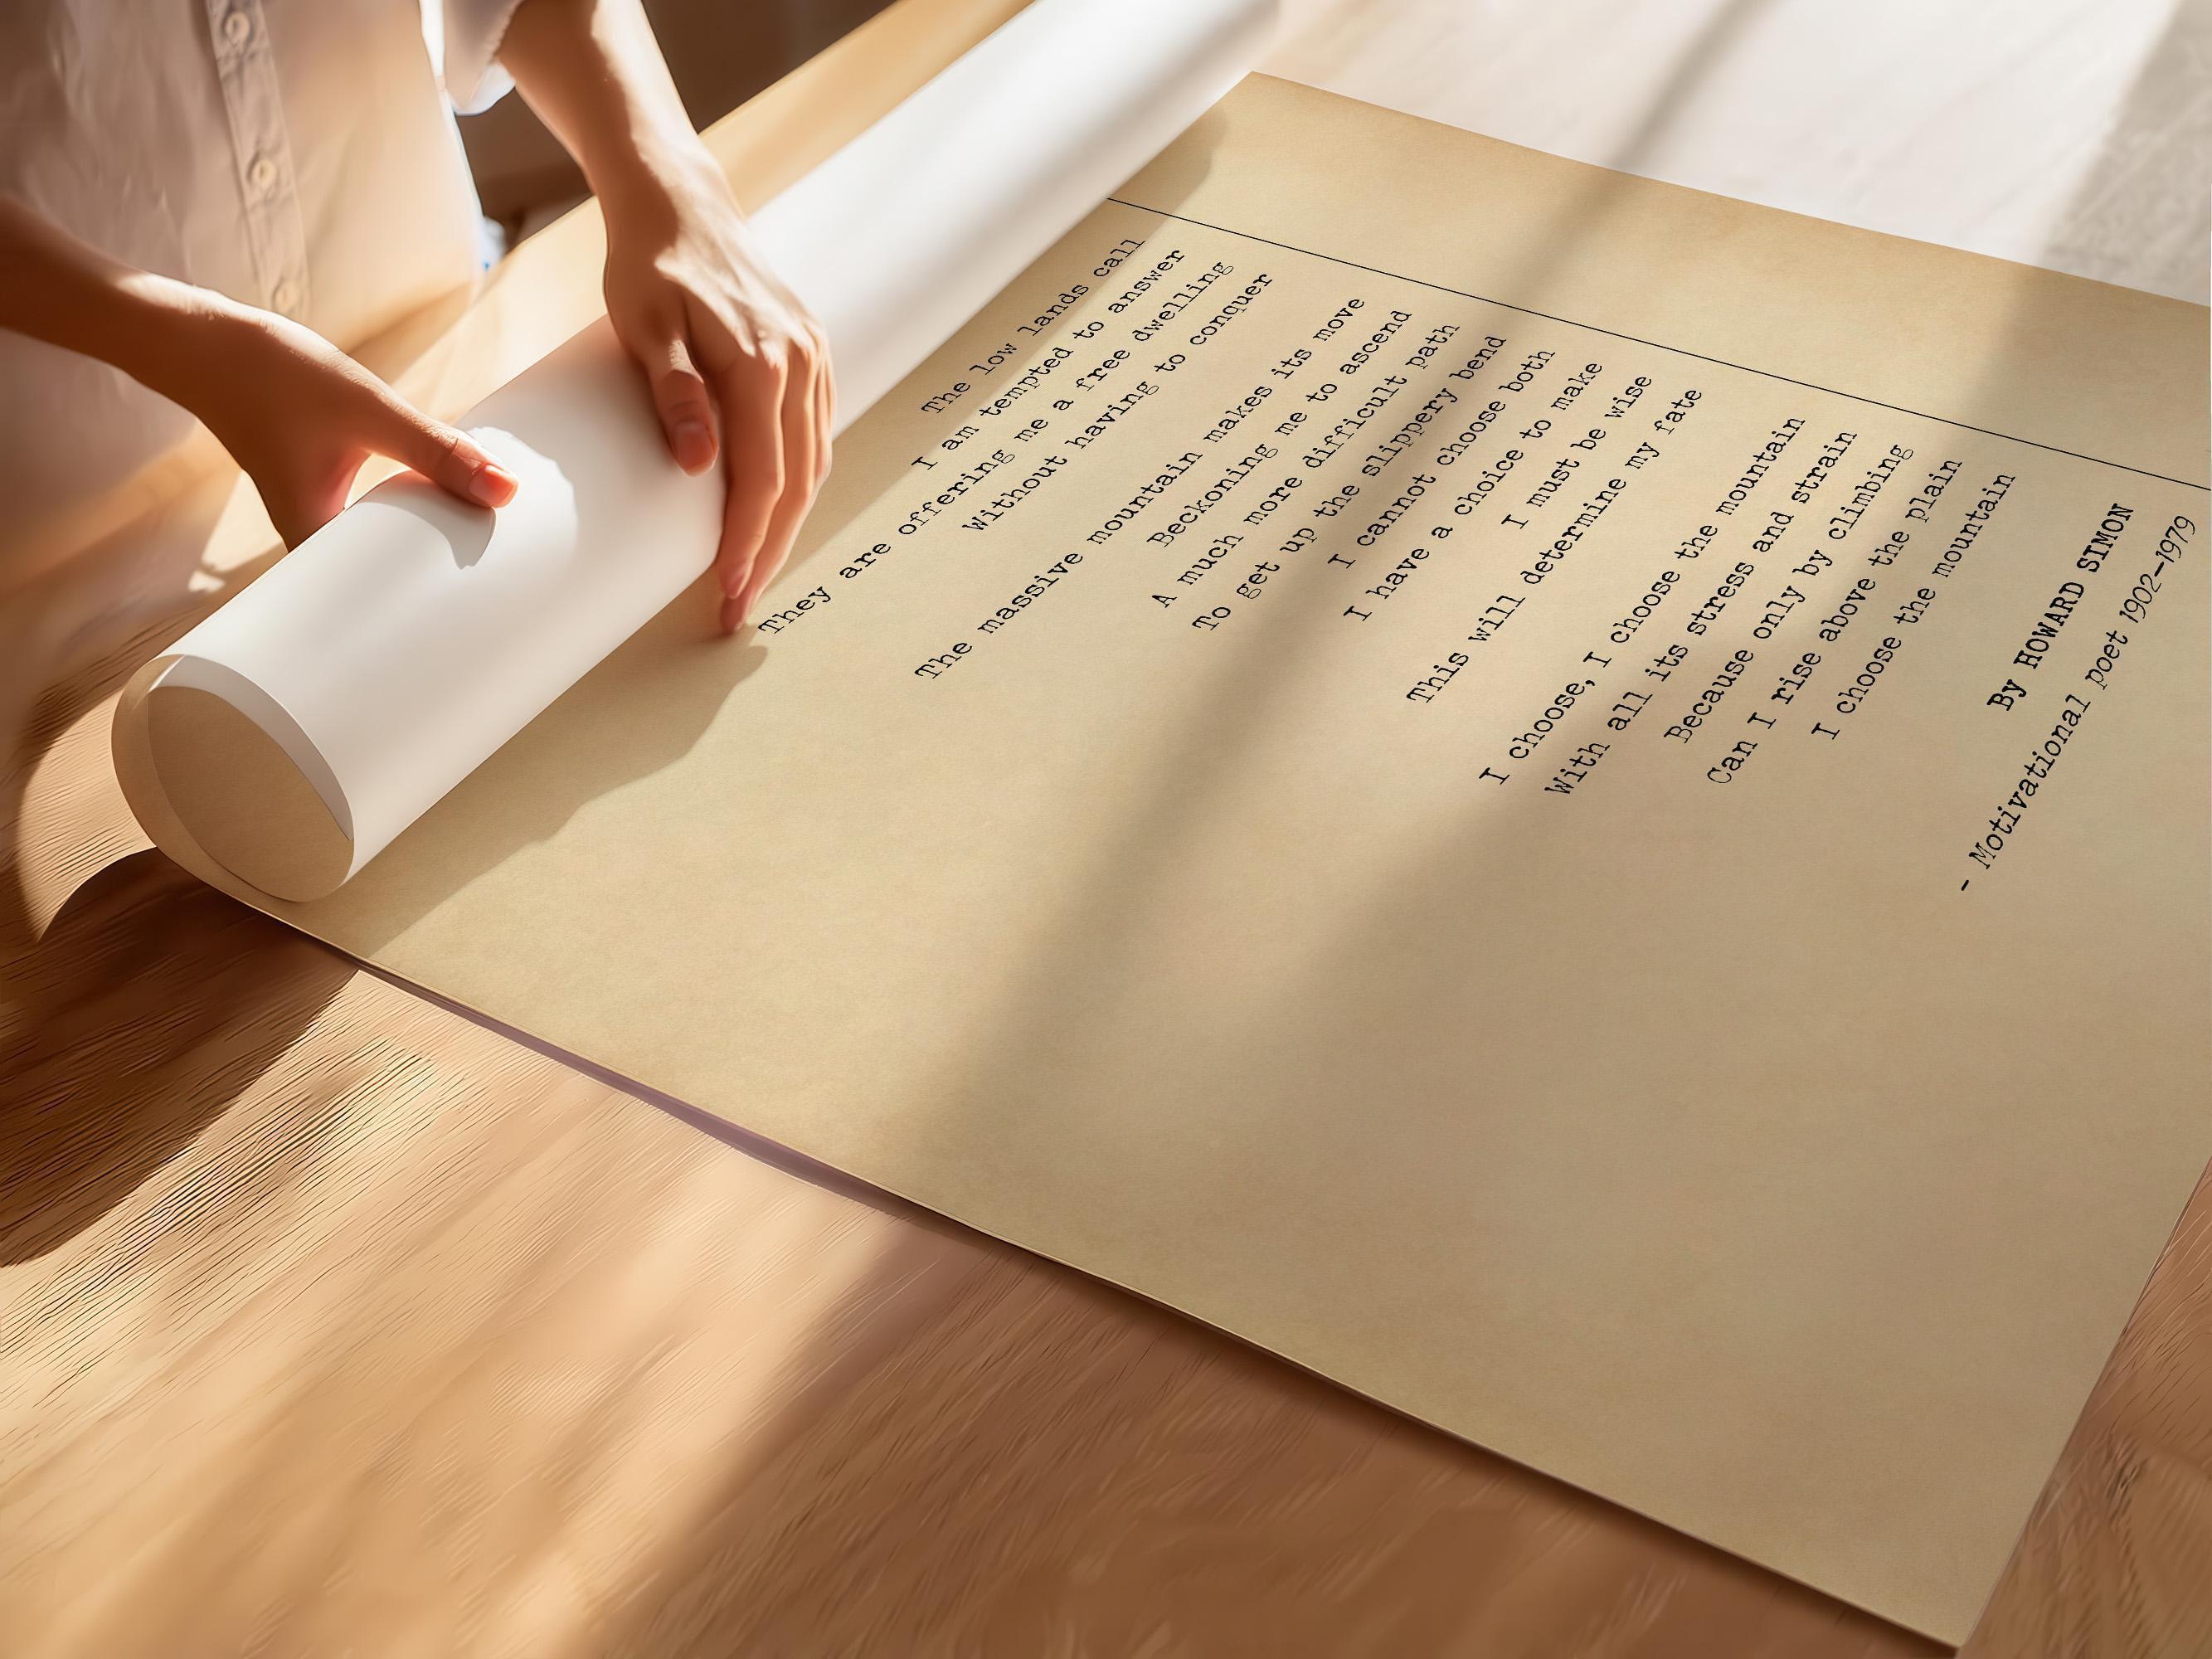 The low lands call
I am tempted to answer
They are offering me a free dwelling
Without having to conquer
The massive mountain makes its move
Beckoning me to ascend
A much more difficult path
To get up the slippery bend
I cannot choose both
I have a choice to make
I must be wise
This will determine my fate
I choose, I choose the mountain
With all its stress and strain
Because only by climbing
Can I rise above the plain
I choose the mountain
By HOWARD SIMON
- Motivational poet 1902-1979